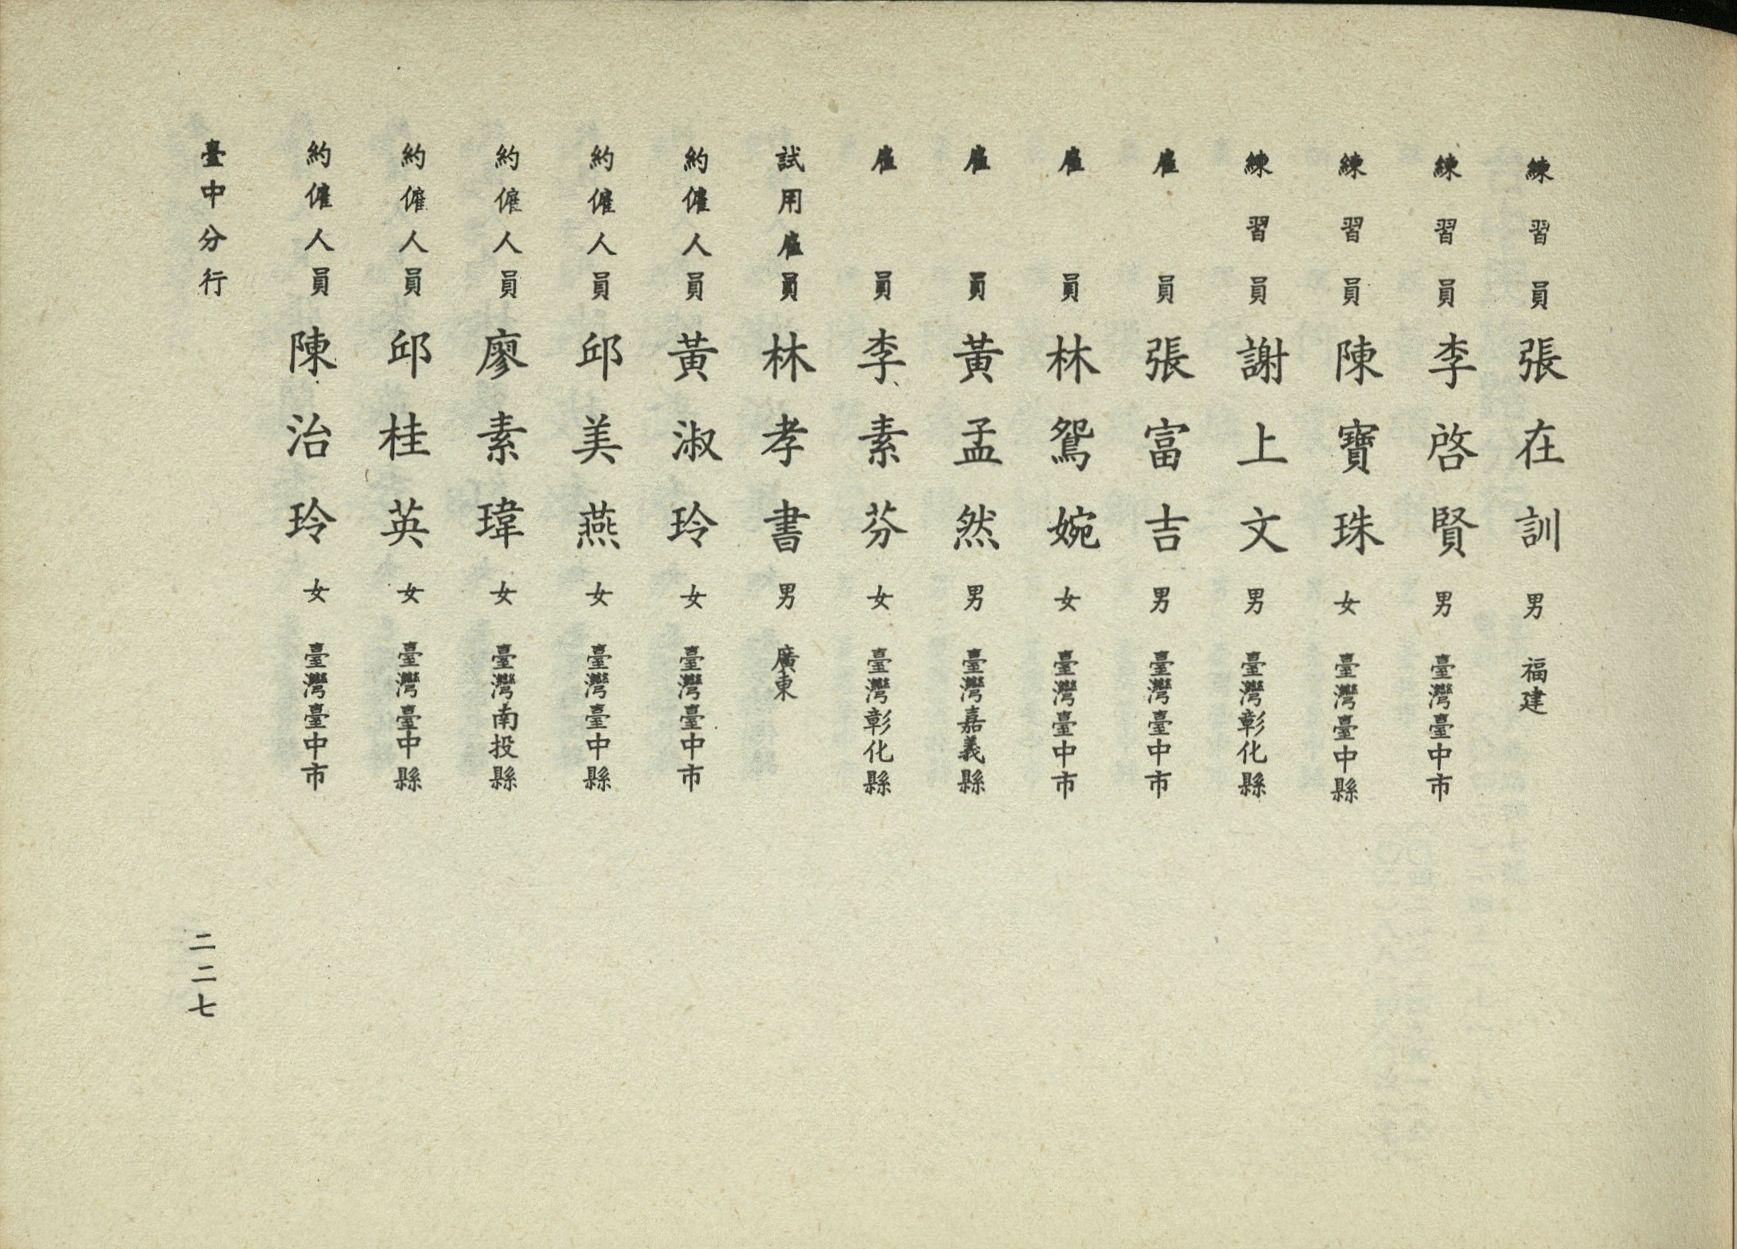 練習員 張在訓 男 福建
練習員 李啓賢 男 臺灣臺中市
練習員 陳寶珠 女 臺灣臺中縣
練習員 謝上文 男 臺灣彰化縣
雇員 張富吉 男 臺灣臺中市
雇員 林鴛婉 女 臺灣臺中市
雇員 黃孟然 男 臺灣嘉義縣
雇員 李素芬 女 臺灣彰化縣
試用雇員 林孝書 男 廣東
約僱人員 黃淑玲 女 臺灣臺中市
約僱人員 邱美燕 女 臺灣臺中縣
約僱人員 廖素瑋 女 臺灣南投縣
約僱人員 邱桂英 女 臺灣臺中縣
約僱人員 陳治玲 女 臺灣臺中市
臺中分行
二二七